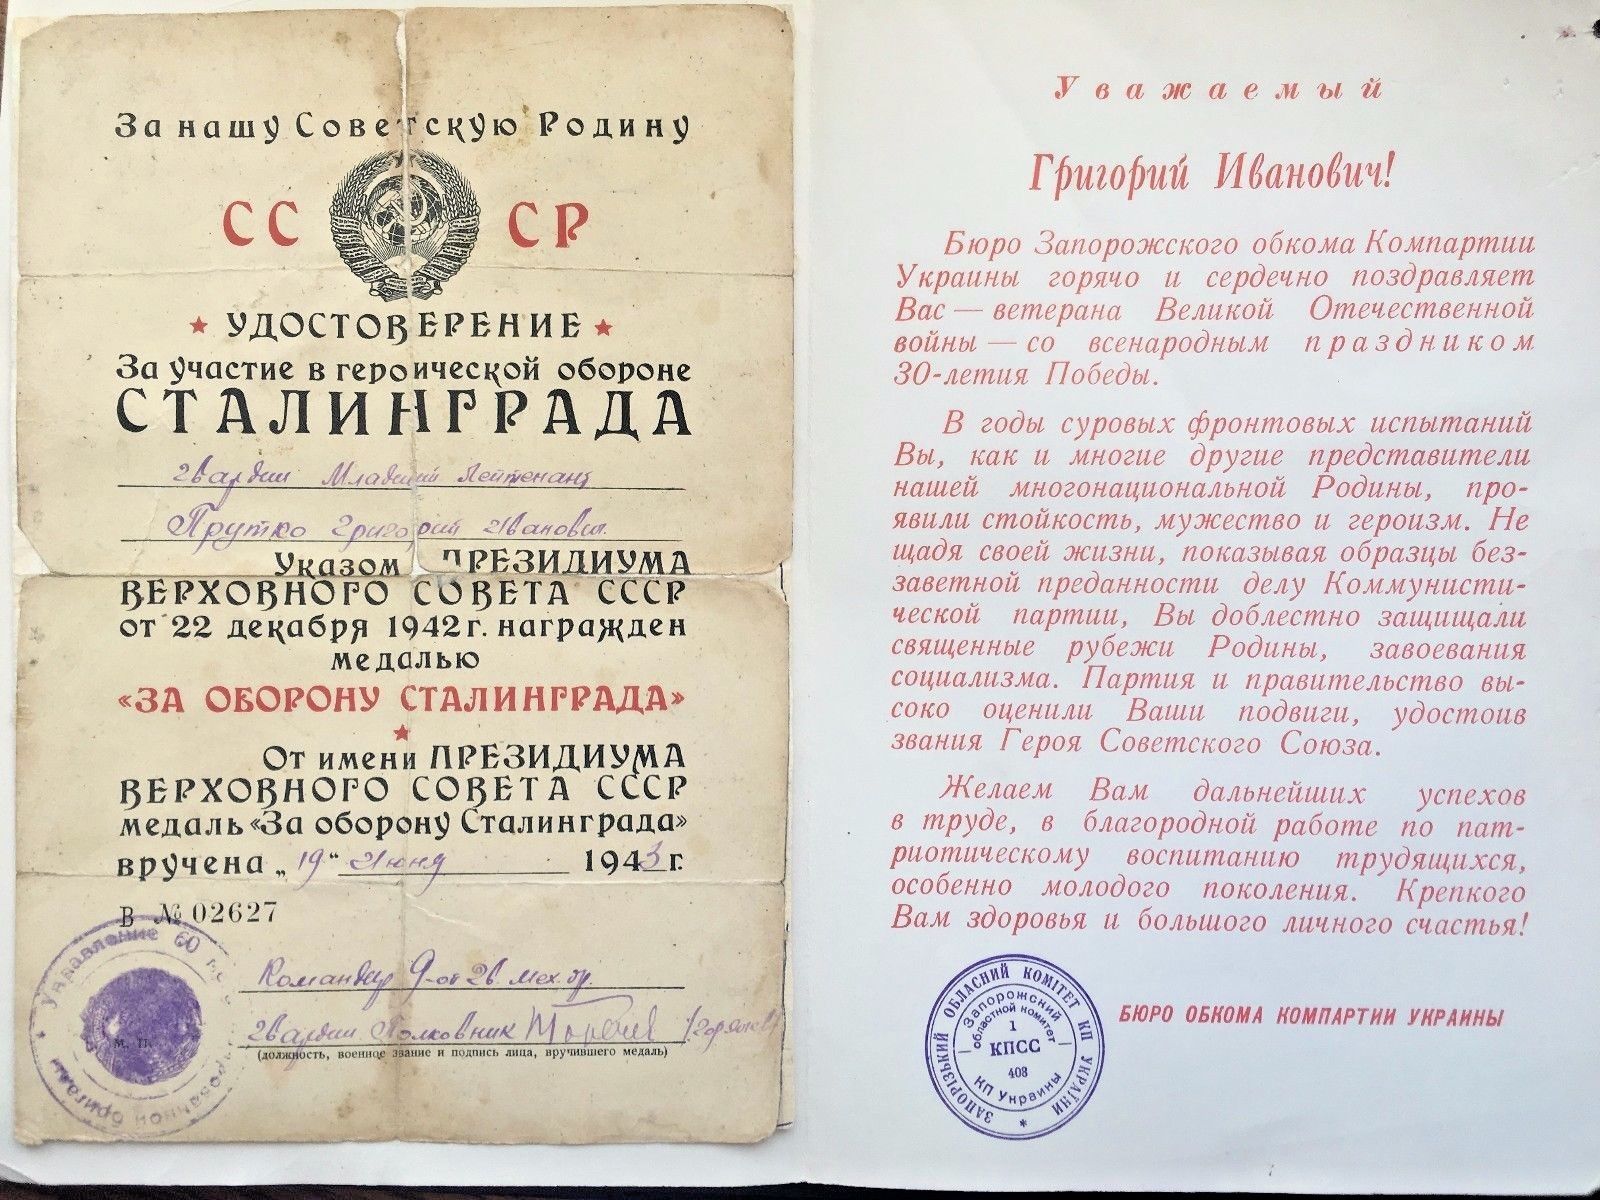 За нашу Советскую Родину
СС СР
УДОСТОВЕРЕНИЕ
За участие в героической обороне
СТАЛИНГРАДА
Гвардии Младший Лейтенант
Прутко Григорий Иванович
Указом ПРЕЗИДИУМА
ВЕРХОВНОГО СОВЕТА СССР
от 22 декабря 1942 г. награжден
медалью
«ЗА ОБОРОНУ СТАЛИНГРАДА»
От имени ПРЕЗИДИУМА
ВЕРХОВНОГО СОВЕТА СССР
медаль «За оборону Сталинграда»
вручена „19“ Июня 1943 г.
В № 02627
Управление 60
бригады
м. п.
Командир 9-от гв. мех. бр.
Гвардии Полковник
(должность, военное звание и подпись лица, вручившего медаль)
Уважаемый
Григорий Иванович!
Бюро Запорожского обкома Компартии
Украины горячо и сердечно поздравляет
Вас — ветерана Великой Отечественной
войны — со всенародным праздником
30-летия Победы.
В годы суровых фронтовых испытаний
Вы, как и многие другие представители
нашей многонациональной Родины, про-
явили стойкость, мужество и героизм. Не
щадя своей жизни, показывая образцы без-
заветной преданности делу Коммунисти-
ческой партии, Вы доблестно защищали
священные рубежи Родины, завоевания
социализма. Партия и правительство вы-
соко оценили Ваши подвиги, удостоив
звания Героя Советского Союза.
Желаем Вам дальнейших успехов
в труде, в благородной работе по пат-
риотическому воспитанию трудящихся,
особенно молодого поколения. Крепкого
Вам здоровья и большого личного счастья!
БЮРО ОБКОМА КОМПАРТИИ УКРАИНЫ
ЗАПОРІЗЬКИЙ ОБЛАСНИЙ КОМІТЕТ КП УКРАЇНИ
Запорожский
областной комитет
1
КПСС
408
КП Украины